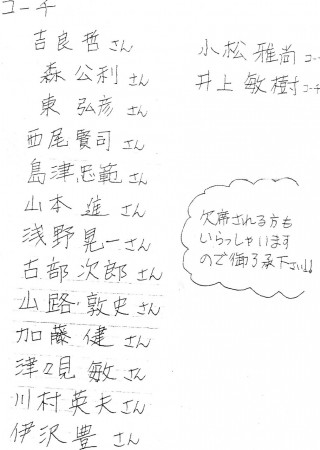 コーチ
吉良哲さん
森公利さん
東弘彦さん
西尾賢司さん
島津忠範さん
山本進さん
浅野晃一さん
古部次郎さん
山路敦史さん
加藤健さん
津々見敏さん
川村英夫さん
伊沢豊さん
小松雅尚コーチ
井上敏樹コーチ
欠席される方も
いらっしゃいます
ので御了承下さい!!